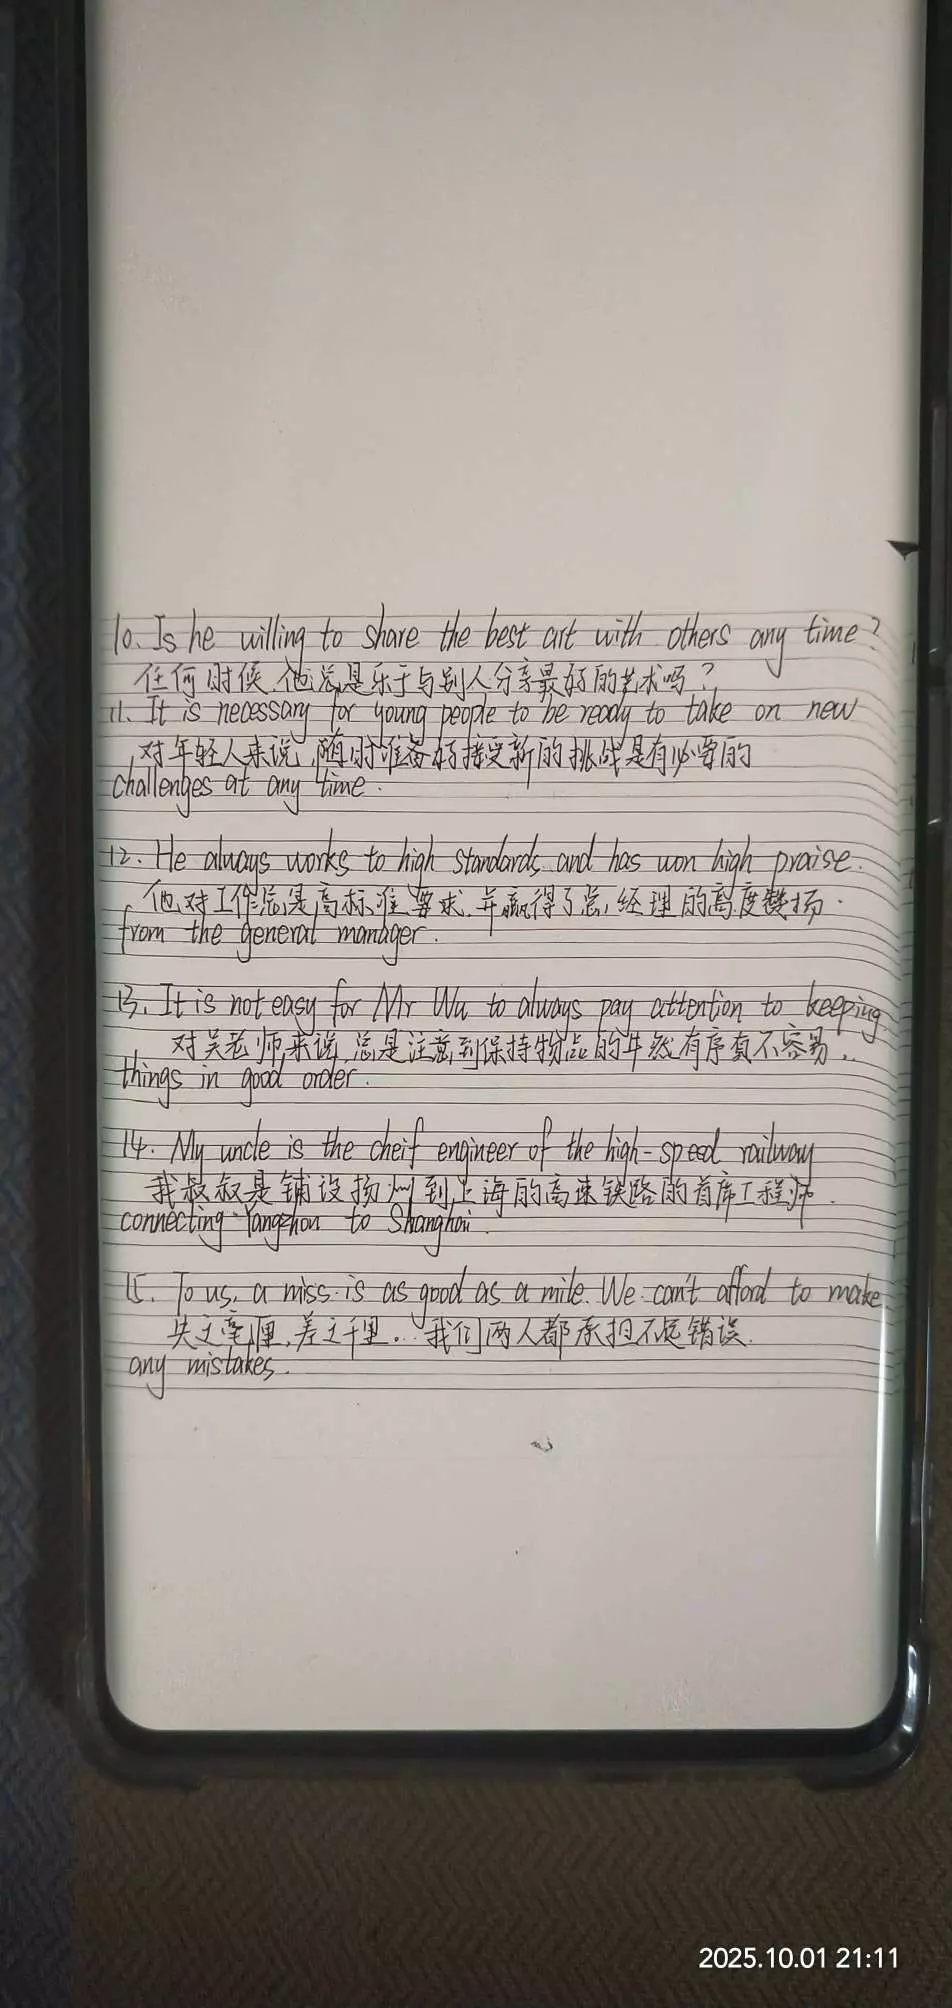 10. Is he willing to share the best art with others any time?
任何时候,他总是乐于与别人分享最好的艺术吗?
11. It is necessary for young people to be ready to take on new
对年轻人来说,随时准备好接受新的挑战是有必要的
challenges at any time.
12. He always works to high standards and has won high praise.
他对工作总是高标准要求,并赢得了总经理的高度赞扬.
from the general manager.
13. It is not easy for Mr Wu to always pay attention to keeping
对吴老师来说,总是注意到保持物品的井然有序真不容易..
things in good order.
14. My uncle is the cheif engineer of the high-speed railway
我叔叔是铺设扬州到上海的高速铁路的首席工程师.
connecting Yangzhou to Shanghai.
15. To us, a miss is as good as a mile. We can't afford to make
失之毫厘,差之千里...我们两人都承担不起错误.
any mistakes.
2025.10.01 21:11